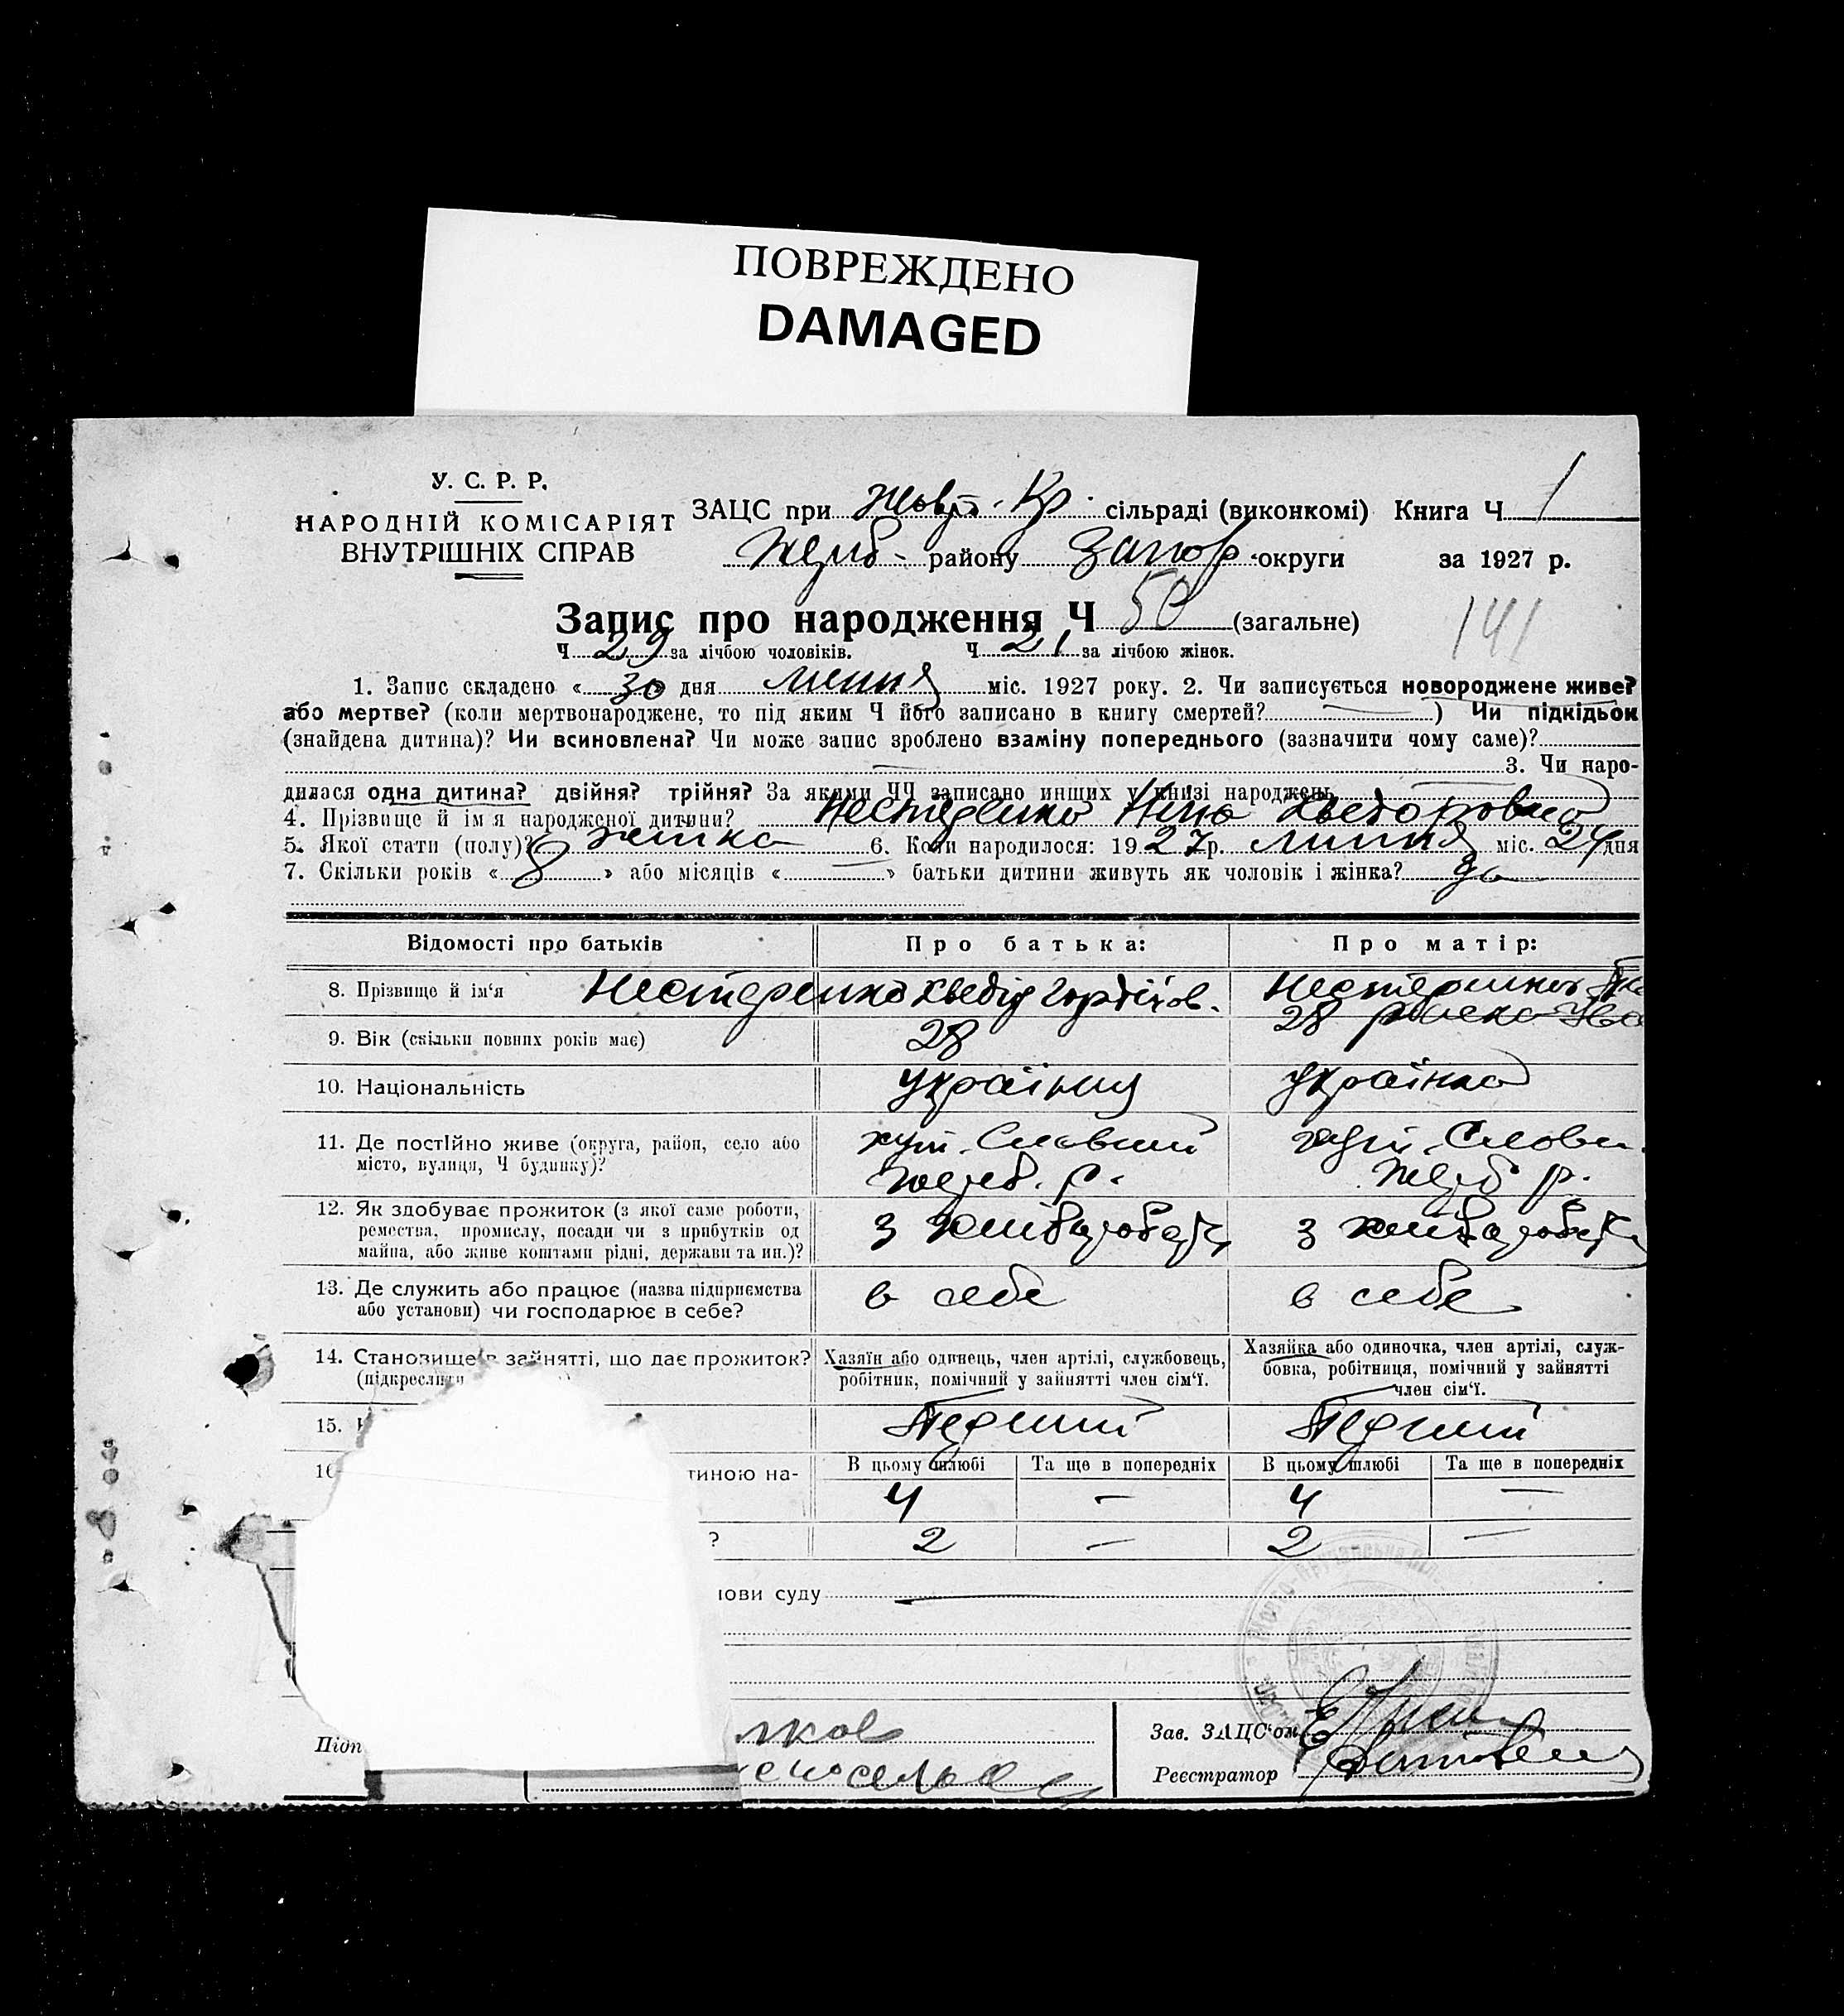 ПОВРЕЖДЕНО
DAMAGED
У. С. Р. Р.
НАРОДНІЙ КОМІСАРІЯТ
ВНУТРІШНІХ СПРАВ
ЗАЦС при Жовт. Кр. сільраді (виконкомі) Книга Ч 1
Жереб- району Запор. округи за 1927 р.
Запис про народження Ч 50 (загальне)
141
Ч 29 за лічбою чоловіків. Ч 21 за лічбою жінок.
1. Запис складено « 30 » дня липня міс. 1927 року. 2. Чи записується новороджене живе?
або мертве? (коли мертвонароджене, то під яким Ч його записано в книгу смертей? ) Чи підкідьок
(знайдена дитина)? Чи всиновлена? Чи може запис зроблено взаміну попереднього (зазначити чому саме)?
3. Чи наро-
дилася одна дитина? двійня? трійня? За якими ЧЧ записано инших у книзі народжень
4. Прізвище й ім'я народженої дитини? Нестеренко Ніна Хведоровна
5. Якої стати (полу)? жінка 6. Коли народилося: 1927 р. липня міс. 24 дня
7. Скільки років « 8 » або місяців « — » батьки дитини живуть як чоловік і жінка? да
Відомості про батьків Про батька: Про матір:
8. Прізвище й ім'я Нестеренко Хведір Гордійов. Нестеренкова
9. Вік (скільки повних років має) 28 28
10. Національність українця українка
11. Де постійно живе (округа, район, село або хут. Славний хут. Славн.
місто, вулиця, Ч будинку)? Жереб. р. Жереб р.
12. Як здобуває прожиток (з якої саме роботи, з хліборобства з хліборобства
ремества, промислу, посади чи з прибутків од
майна, або живе коштами рідні, держави та ин.)?
13. Де служить або працює (назва підприємства в себе в себе
або установи) чи господарює в себе?
14. Становище в зайнятті, що дає прожиток? Хазяїн або одинець, член артілі, службовець, Хазяйка або одиночка, член артілі, служ-
(підкреслити робітник, помічний у зайнятті член сім'ї. бовка, робітниця, помічний у зайнятті
член сім'ї.
15. Перший Перший
16 тиною на- В цьому шлюбі Та ще в попередніх В цьому шлюбі Та ще в попередніх
4 — 4 —
? 2 — 2 —
нови суду
Підп лков Зав. ЗАЦС'ом
Реєстратор